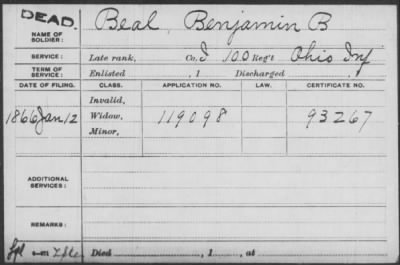 DEAD.
NAME OF SOLDIER: Beal, Benjamin B
SERVICE: Late rank, Co. I 100 Reg't Ohio Inf
TERM OF SERVICE: Enlisted , 1 Discharged , 1
DATE OF FILING. CLASS. APPLICATION NO. LAW. CERTIFICATE NO.
Invalid,
1866 Jan 12 Widow, 119098 93267
Minor,
ADDITIONAL SERVICES:
REMARKS:
Died , 1 , at